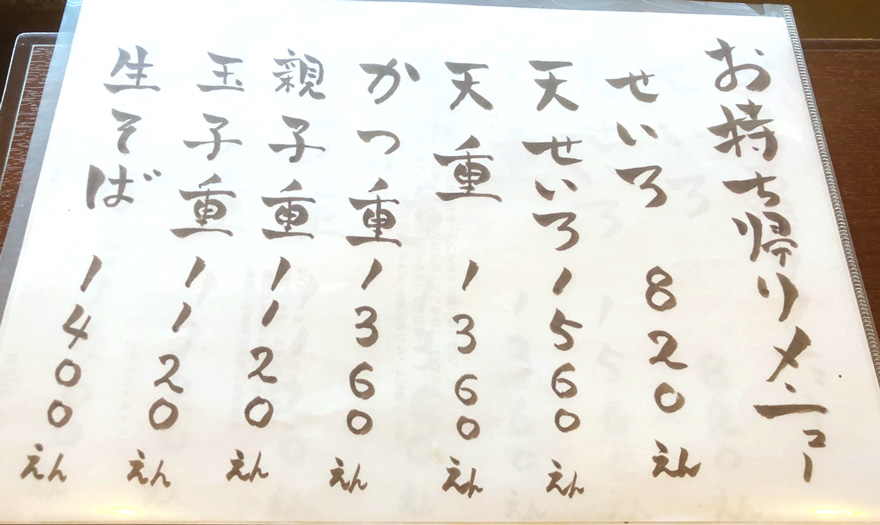 お持ち帰りメニュー
せいろ 820えん
天せいろ 1560えん
天重 1360えん
かつ重 1360えん
親子重 1120えん
玉子重 1120えん
生そば 1400えん